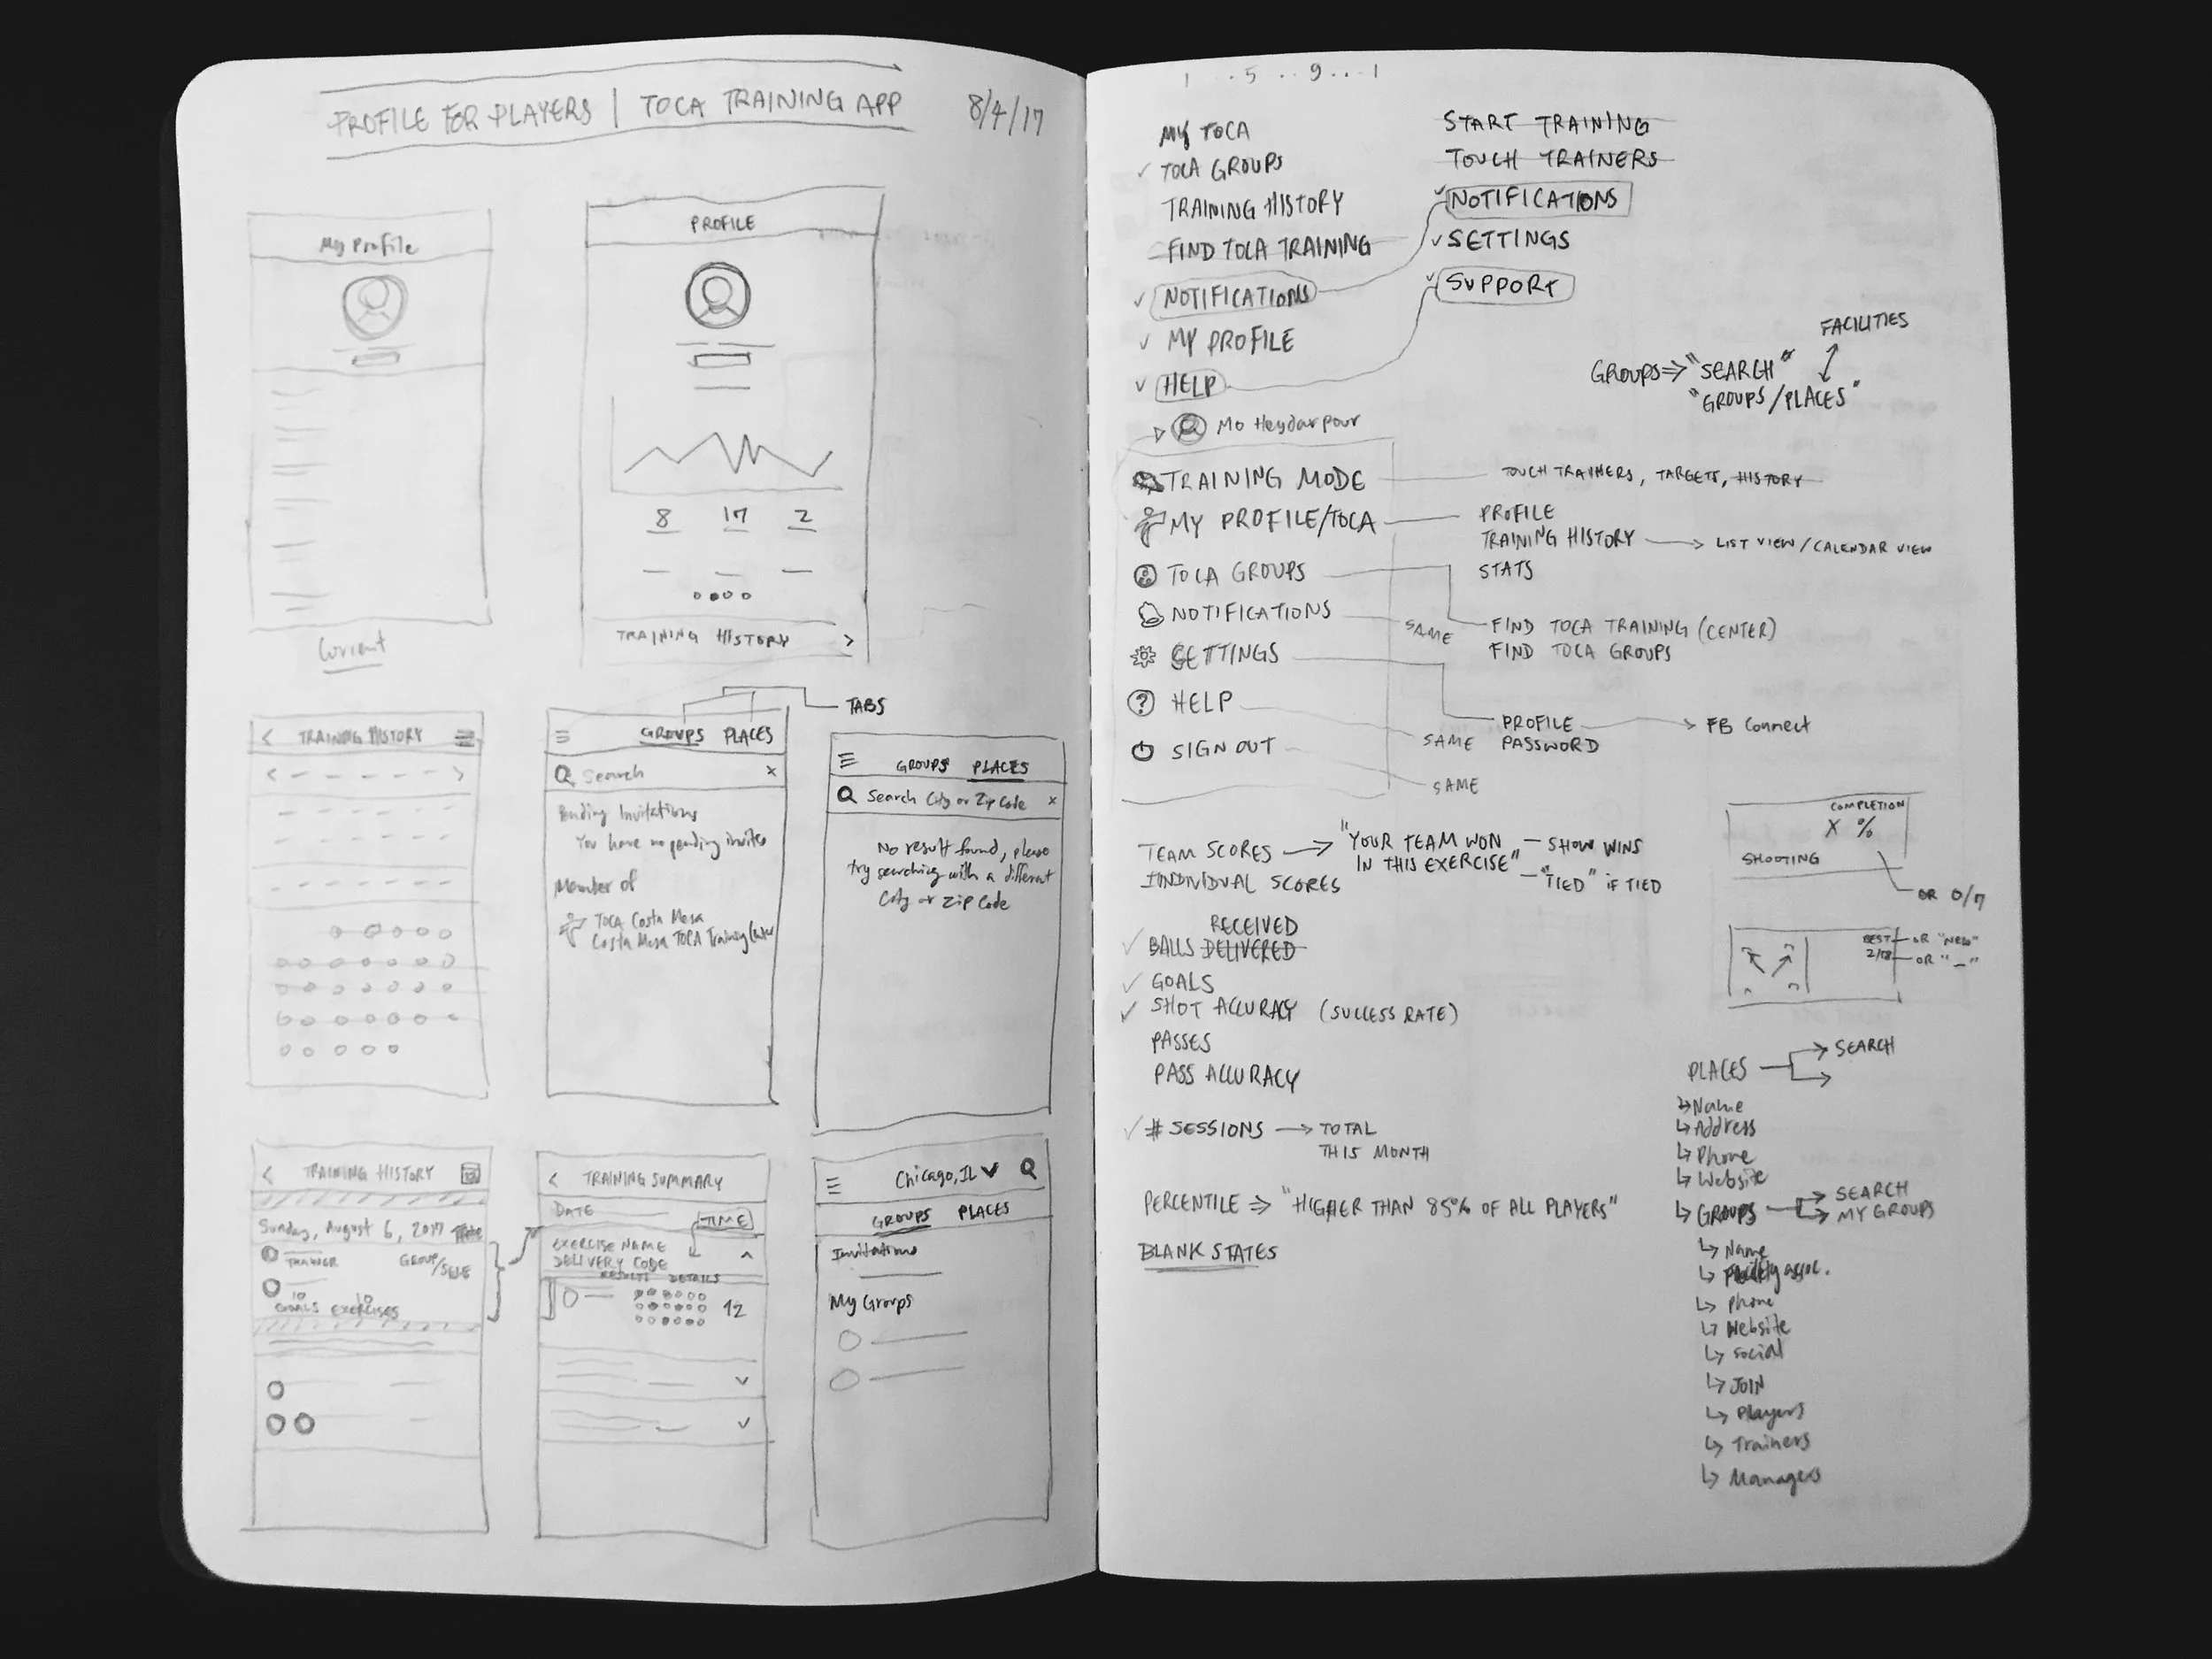 PROFILE FOR PLAYERS | TOCA TRAINING APP 8/4/17
My Profile
Current
PROFILE
8 17 2
TRAINING HISTORY >
< TRAINING HISTORY
< >
TABS
GROUPS PLACES
Search x
Pending Invitations
You have no pending invites
Member of
TOCA Costa Mesa
Costa Mesa TOCA Training Center
GROUPS PLACES
Search City or Zip Code x
No result found, please
try searching with a different
City or Zip Code
< TRAINING HISTORY
Sunday, August 6, 2017
TRAINER GROUP/SELF
10 10
GOALS EXERCISES
< TRAINING SUMMARY
DATE
TIME
EXERCISE NAME
DELIVERY CODE
RESULTS DETAILS
12
Chicago, IL
GROUPS PLACES
Invitations
My Groups
1 . . 5 . . 9 . . . 1
MY TOCA
✓ TOCA GROUPS
TRAINING HISTORY
FIND TOCA TRAINING
✓ NOTIFICATIONS
✓ MY PROFILE
✓ HELP
START TRAINING
TOUCH TRAINERS
✓ NOTIFICATIONS
✓ SETTINGS
✓ SUPPORT
FACILITIES
GROUPS ⇒ "SEARCH"
"GROUPS/PLACES"
Mo Heydarpour
TRAINING MODE
TOUCH TRAINERS, TARGETS, HISTORY
MY PROFILE/TOCA
PROFILE
TRAINING HISTORY → LIST VIEW/CALENDAR VIEW
STATS
TOCA GROUPS
NOTIFICATIONS
SAME
FIND TOCA TRAINING (CENTER)
FIND TOCA GROUPS
SETTINGS
? HELP
PROFILE → FB Connect
PASSWORD
SAME
SIGN OUT
SAME
TEAM SCORES → "YOUR TEAM WON — SHOW WINS
INDIVIDUAL SCORES IN THIS EXERCISE" — "TIED" IF TIED
COMPLETION
X %
SHOOTING
OR 0/7
RECEIVED
✓ BALLS DELIVERED
✓ GOALS
✓ SHOT ACCURACY (SUCCESS RATE)
PASSES
PASS ACCURACY
BEST OR "NEW"
2/18 OR "_"
✓ # SESSIONS → TOTAL
THIS MONTH
PERCENTILE ⇒ "HIGHER THAN 85% OF ALL PLAYERS"
BLANK STATES
PLACES → SEARCH
↳ Name
↳ Address
↳ Phone
↳ Website
↳ GROUPS → SEARCH
→ MY GROUPS
↳ Name
↳ assoc.
↳ Phone
↳ Website
↳ Social
↳ JOIN
↳ Players
↳ Trainers
↳ Managers